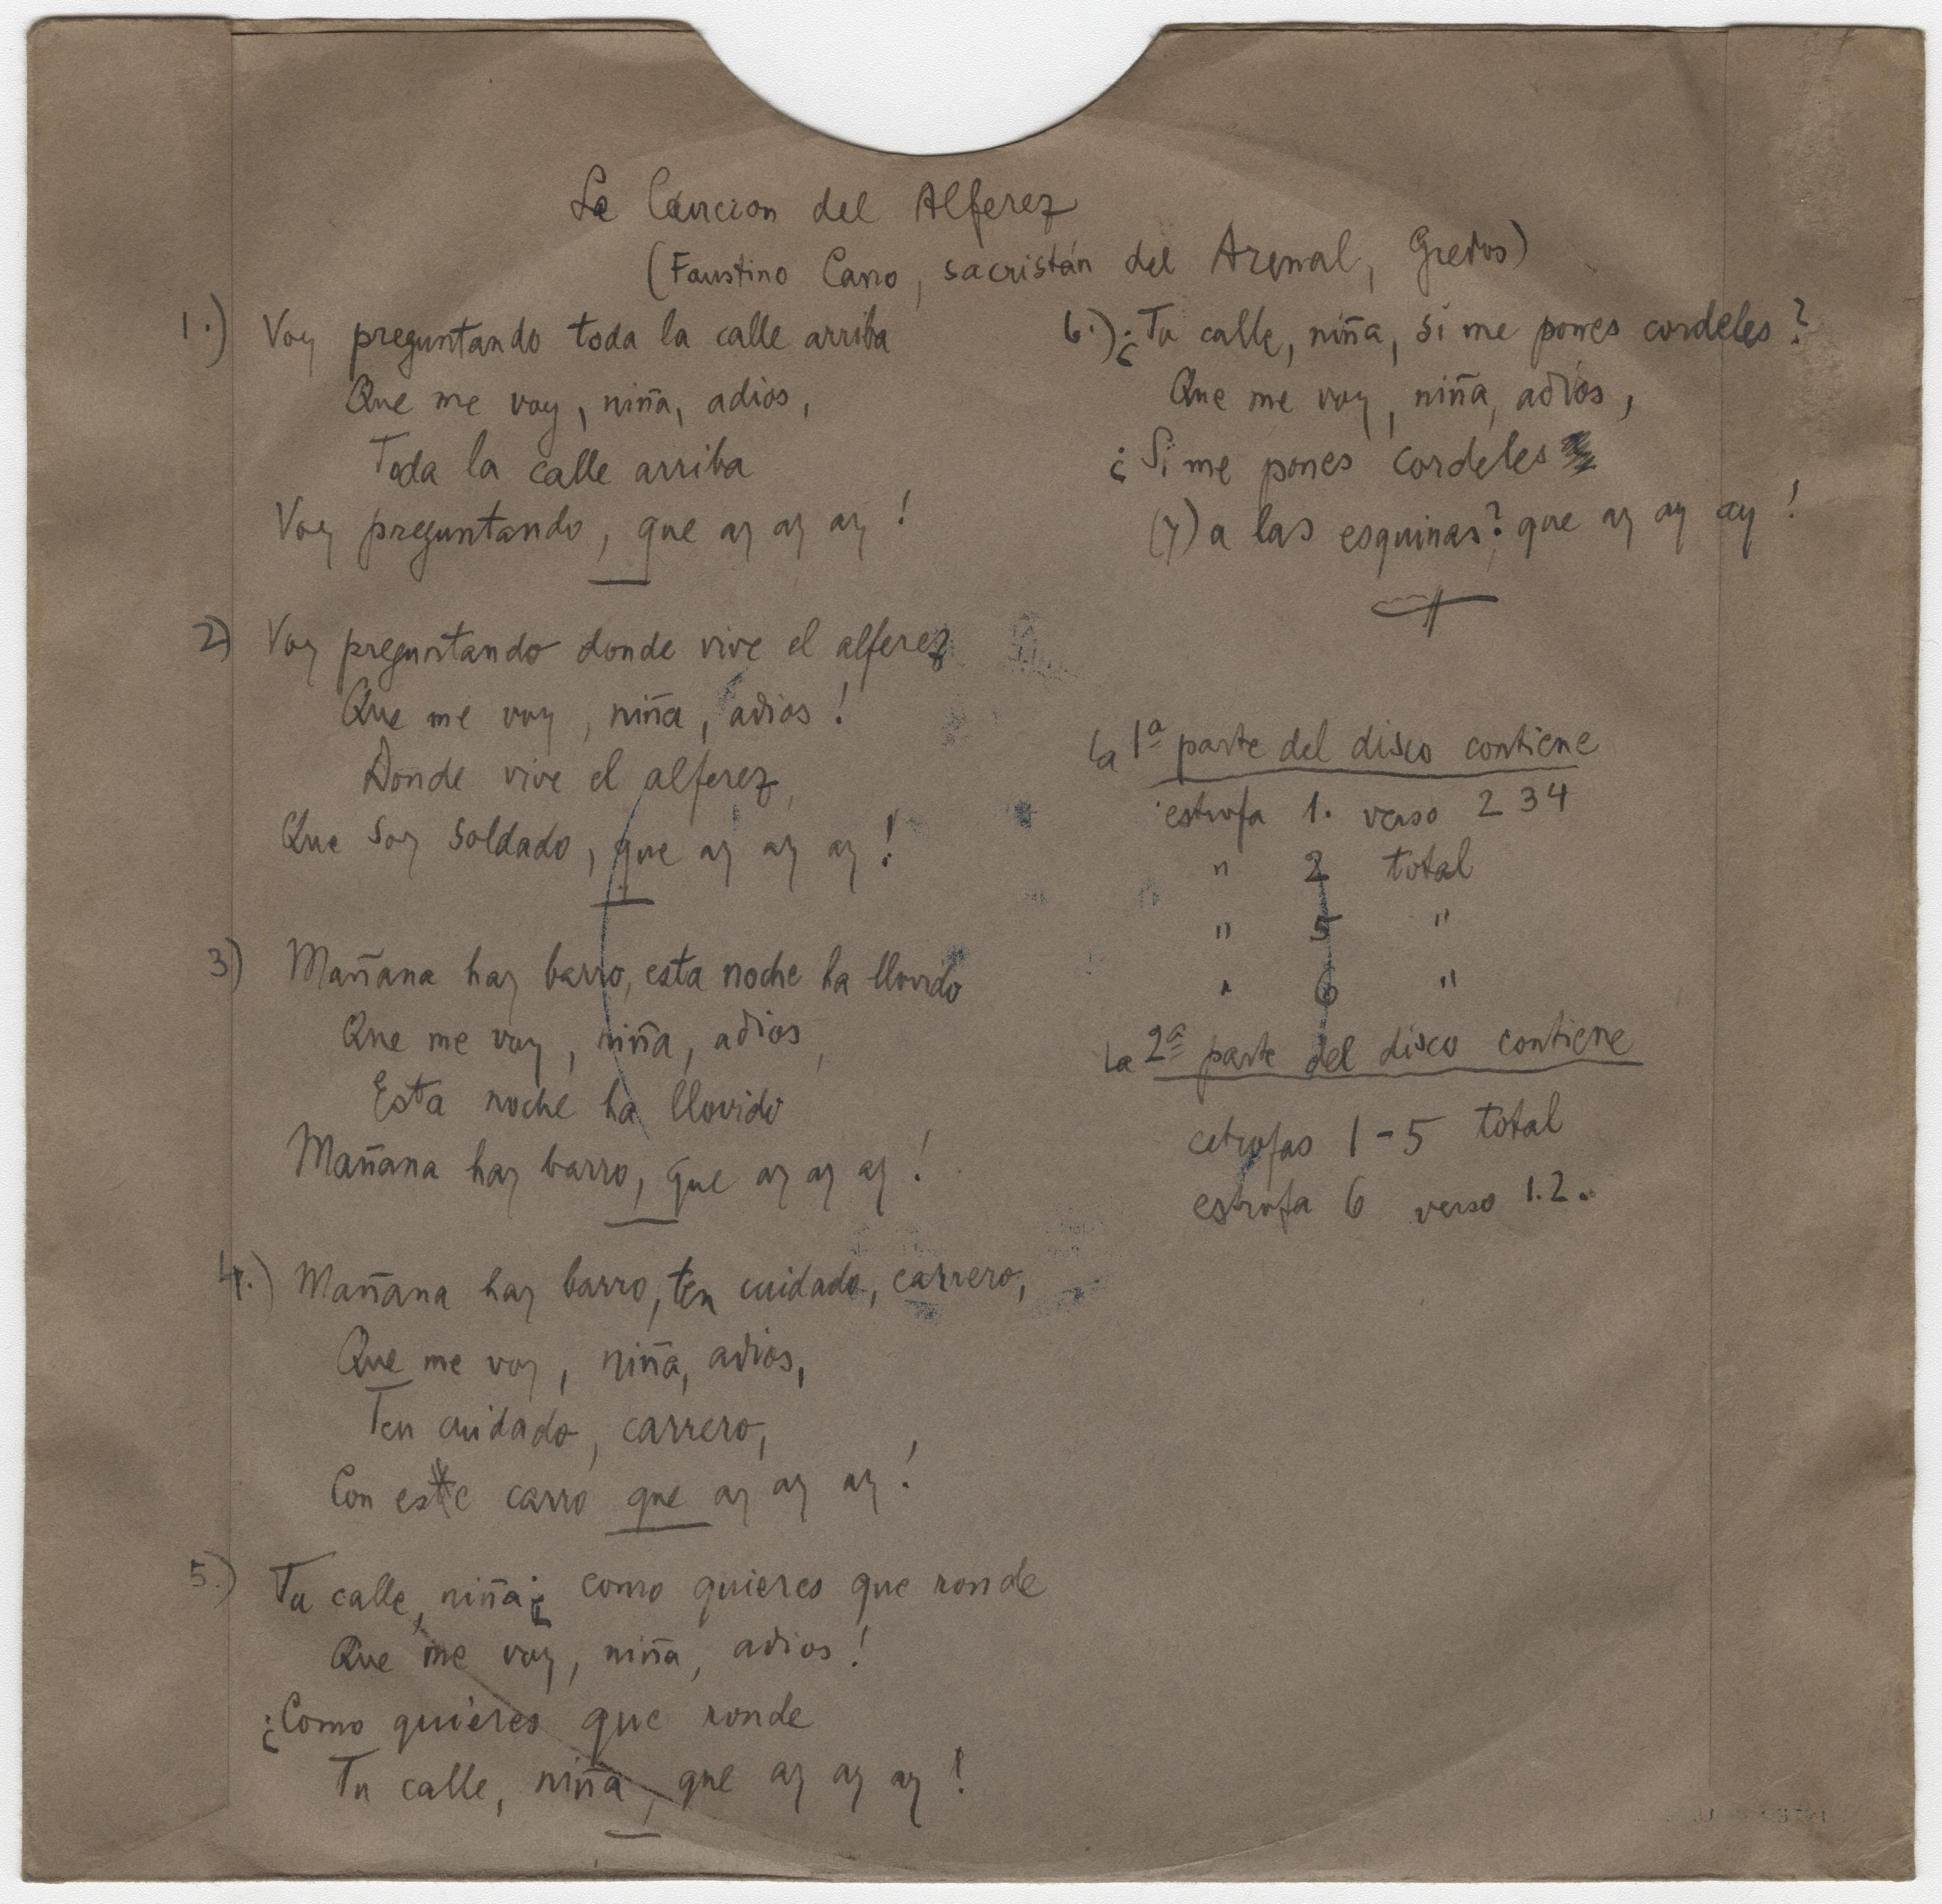 La Cancion del Alferez
(Faustino Cano, sacristán del Arenal, Gredos)
1.) Voy preguntando toda la calle arriba
Que me voy, niña, adios,
Toda la calle arriba
Voy preguntando, que ay ay ay!
2) Voy preguntando donde vive el alferez
Que me voy, niña, adios!
Donde vive el alferez,
Que soy soldado, que ay ay ay!
3) Mañana hay barro, esta noche ha llovido
Que me voy, niña, adios,
Esta noche ha llovido
Mañana hay barro, que ay ay ay!
4.) Mañana hay barro, ten cuidado, carrero,
Que me voy, niña, adios,
Ten cuidado, carrero,
Con ese carro que ay ay ay!
5.) Tu calle, niña ¿ como quieres que ronde
Que me voy, niña, adios!
¿Como quieres que ronde
Tu calle, niña, que ay ay ay!
6.) ¿Tu calle, niña, si me pones cordeles?
Que me voy, niña, adios,
¿Si me pones cordeles
(y) a las esquinas? que ay ay ay!
La 1ª parte del disco contiene
estrofa 1. verso 2 3 4
" 2 total
" 5 "
" 6 "
La 2ª parte del disco contiene
estrofas 1-5 total
estrofa 6 verso 1.2.